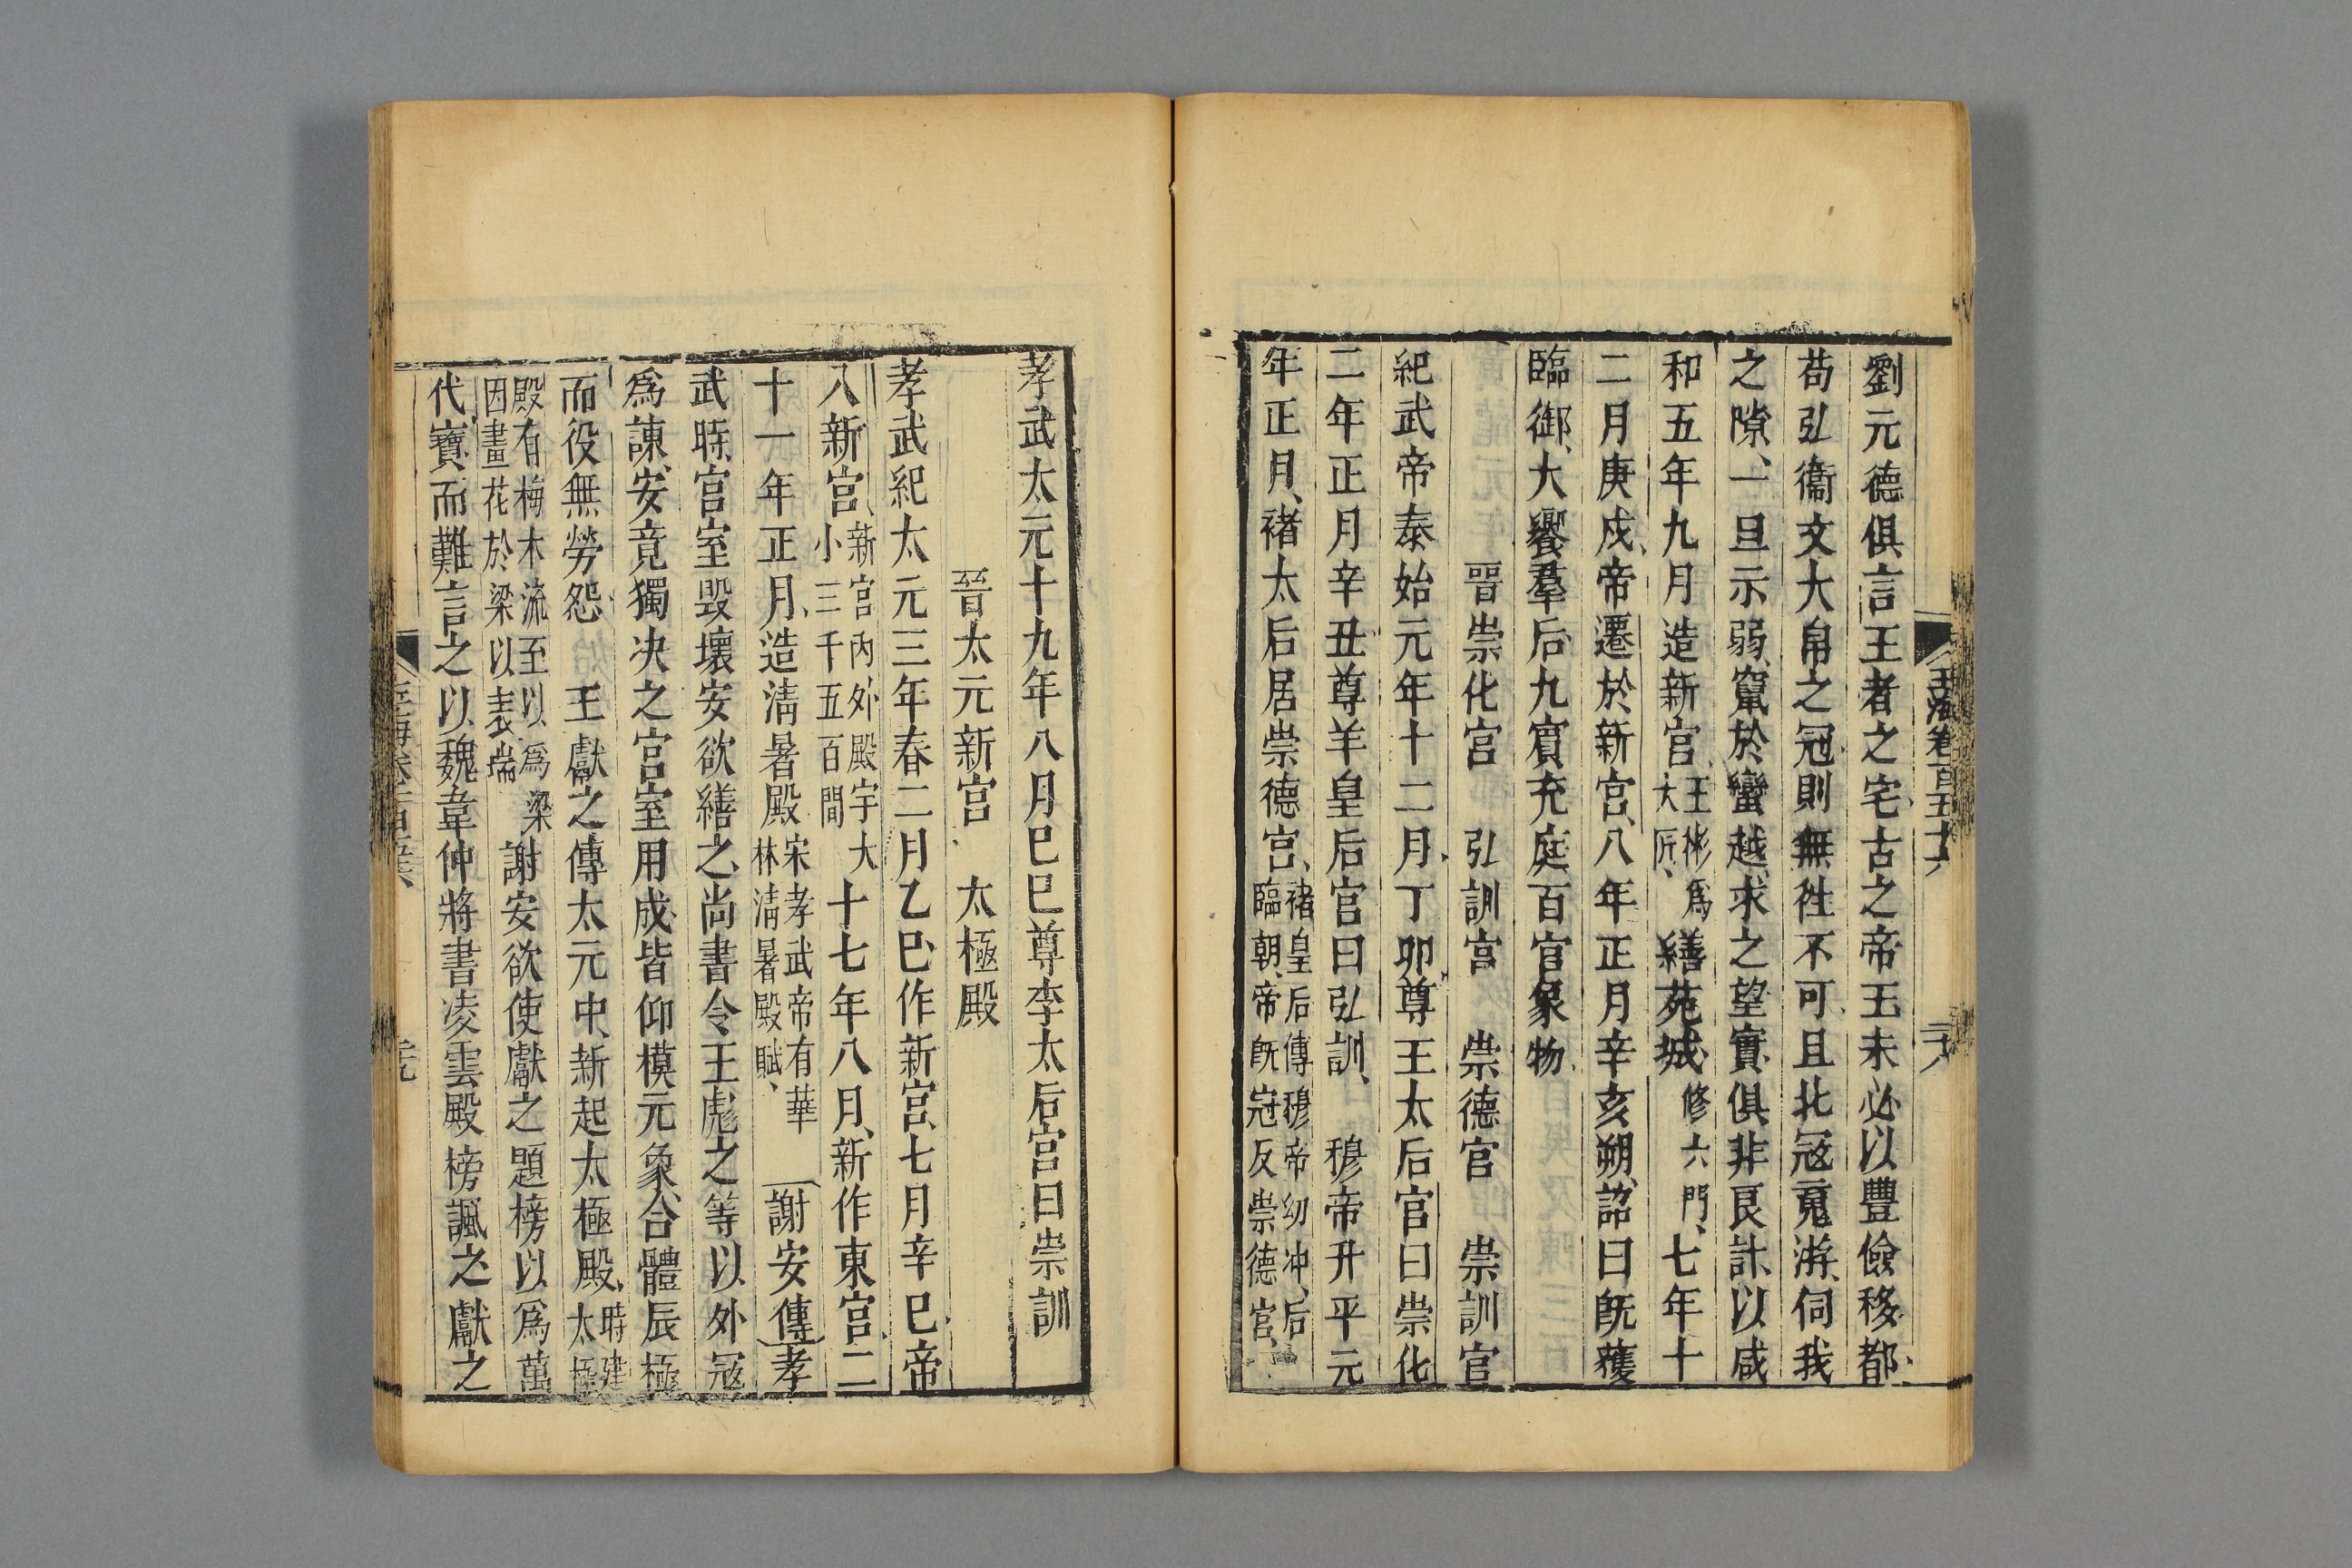 玉海卷一百五十六
二十八
劉元德俱言王者之宅古之帝王未必以豐儉移都
苟弘衞文大帛之冠則無徃不可且北冦䰟游伺我
之隙一旦示弱竄於蠻越求之望實俱非良計以咸
和五年九月造新宮王彬爲大匠繕苑城修六門七年十
二月庚戌帝遷於新宮八年正月辛亥朔詔曰旣獲
臨御大饗羣后九賓充庭百官象物
晉崇化宮 弘訓宮 崇德宮 崇訓宮
紀武帝泰始元年十二月丁卯尊王太后宮曰崇化
二年正月辛丑尊羊皇后宮曰弘訓 穆帝升平元
年正月褚太后居崇德宮褚皇后傳穆帝幼冲后臨朝帝旣冠反崇德宮
孝武太元十九年八月己巳尊李太后宮曰崇訓
晉太元新宮 太極殿
孝武紀太元三年春二月乙巳作新宮七月辛巳帝
入新宮新宮内外殿宇大小三千五百間十七年八月新作東宮二
十一年正月造清暑殿宋孝武帝有華林清暑殿賦 謝安傳孝
武時宮室毀壞安欲繕之尚書令王彪之等以外冦
爲諫安竟獨决之宮室用成皆仰模元象合體辰極
而役無勞怨 王獻之傳太元中新起太極殿時建太極
殿有梅木流至以爲梁因畫花於梁以表瑞謝安欲使獻之題榜以爲萬
代寳而難言之以魏韋仲將書凌雲殿榜諷之獻之
玉海卷一百五十六
二十九